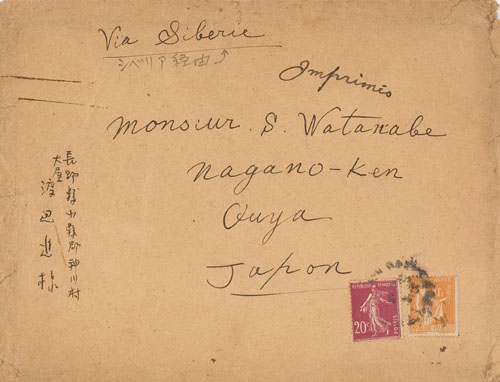 Via Siberie
シベリア経由
Imprimés
Monsieur. S. Watanabe
Nagano-Ken
Ouya
Japon
長野縣小縣郡神川村
大屋
渡辺進様
REPUBLIQUE FRANÇAISE
20c
POSTES